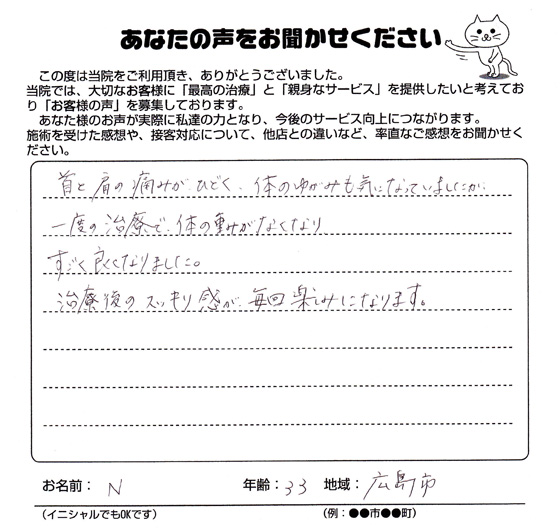 あなたの声をお聞かせください
この度は当院をご利用頂き、ありがとうございました。
当院では、大切なお客様に「最高の治療」と「親身なサービス」を提供したいと考えてお
り「お客様の声」を募集しております。
あなた様のお声が実際に私達の力となり、今後のサービス向上につながります。
施術を受けた感想や、接客対応について、他店との違いなど、率直なご感想をお聞かせく
ださい。
首と肩の痛みがひどく、体のゆがみも気になっていましたが、
一度の治療で、体の重みがなくなり
すごく良くなりました。
治療後のスッキリ感が、毎回楽しみになります。
お名前： N 年齢：33 地域： 広島市
（イニシャルでもOKです） （例：●●市●●町）